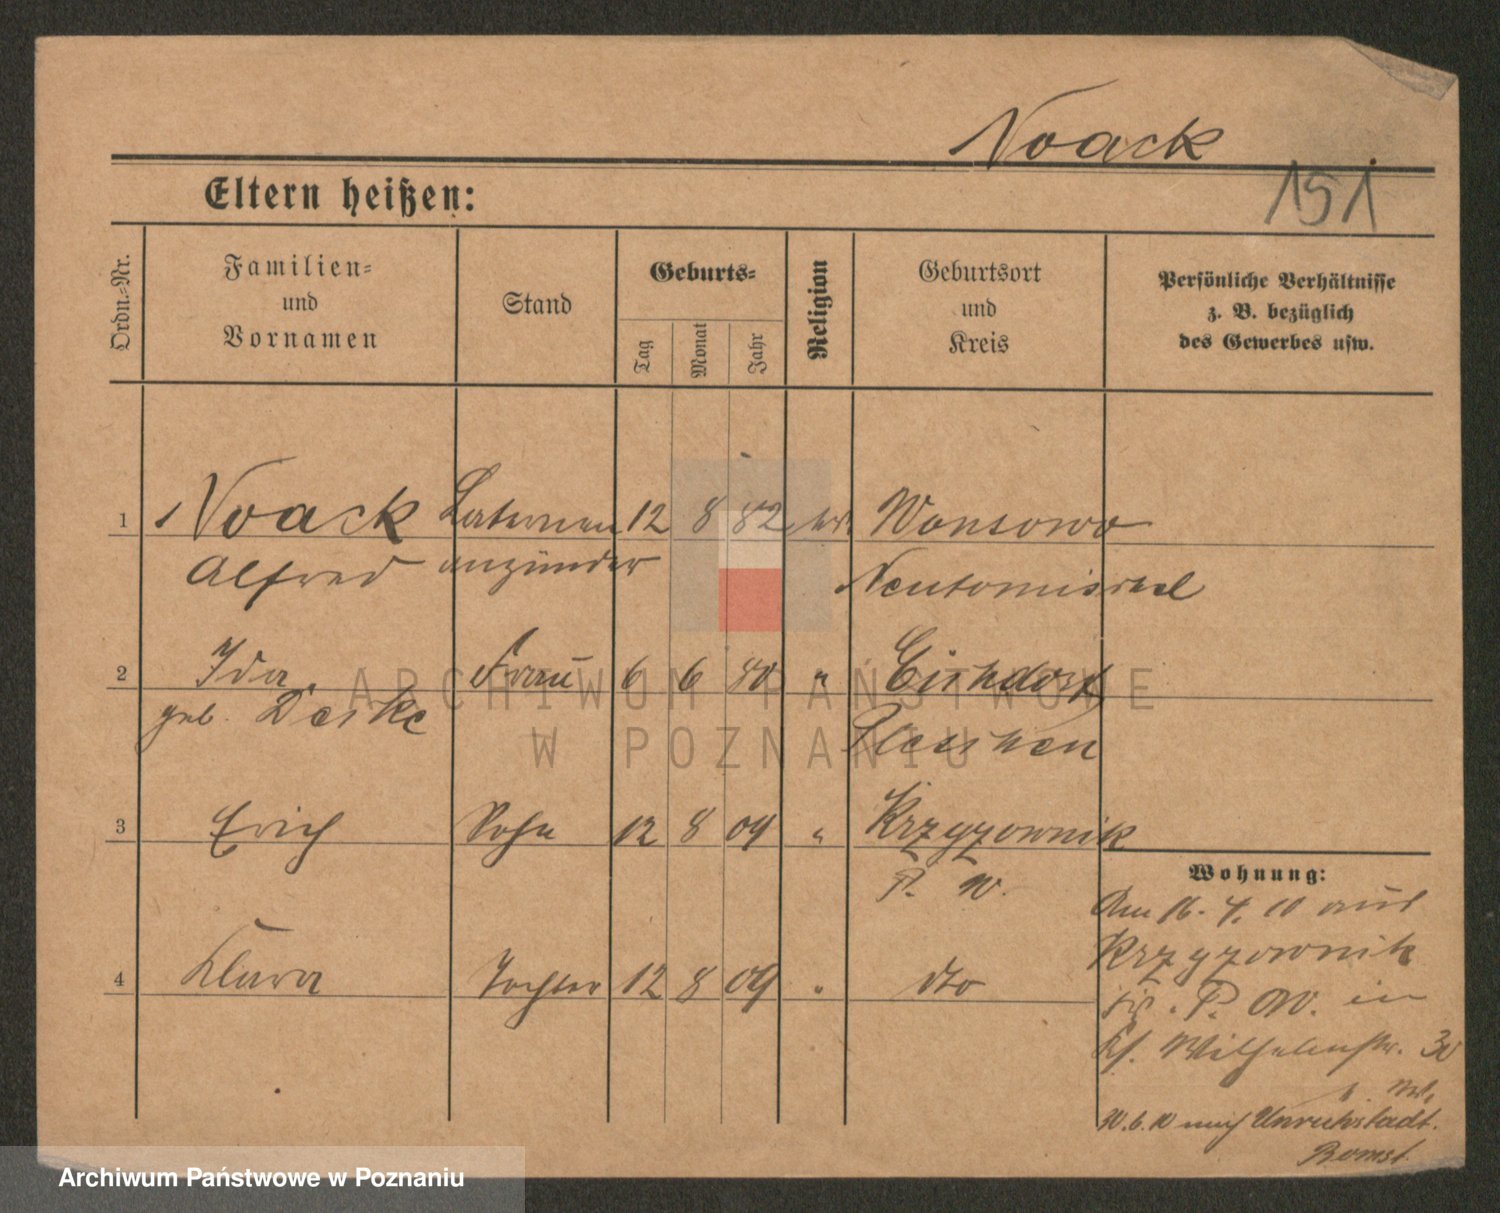 Noack
151
Eltern heißen:
Ordn.-Nr.
Familien-
und
Vornamen
Stand
Geburts-
Tag
Monat
Jahr
Religion
Geburtsort
und
Kreis
Persönliche Verhältnisse
z. B. bezüglich
des Gewerbes usw.
1 Noack Laternen 12 8 82 Wonsowo
Alfred anzünder Neutomischel
2 Ida Frau 6 6 80 " Eichdorf
geb. Deske Pleschen
3 Erich Sohn 12 8 09 " Krzyzownik
P. W.
Wohnung:
Am 16. 4. 10 aus
Krzyzownik
P. W. in
Wilhelmstr. 30
4 Klara Tochter 12 8 09 " dto
30.6.10 nach Unruhstadt.
Bomst.
ARCHIWUM PAŃSTWOWE
W POZNANIU
Archiwum Państwowe w Poznaniu